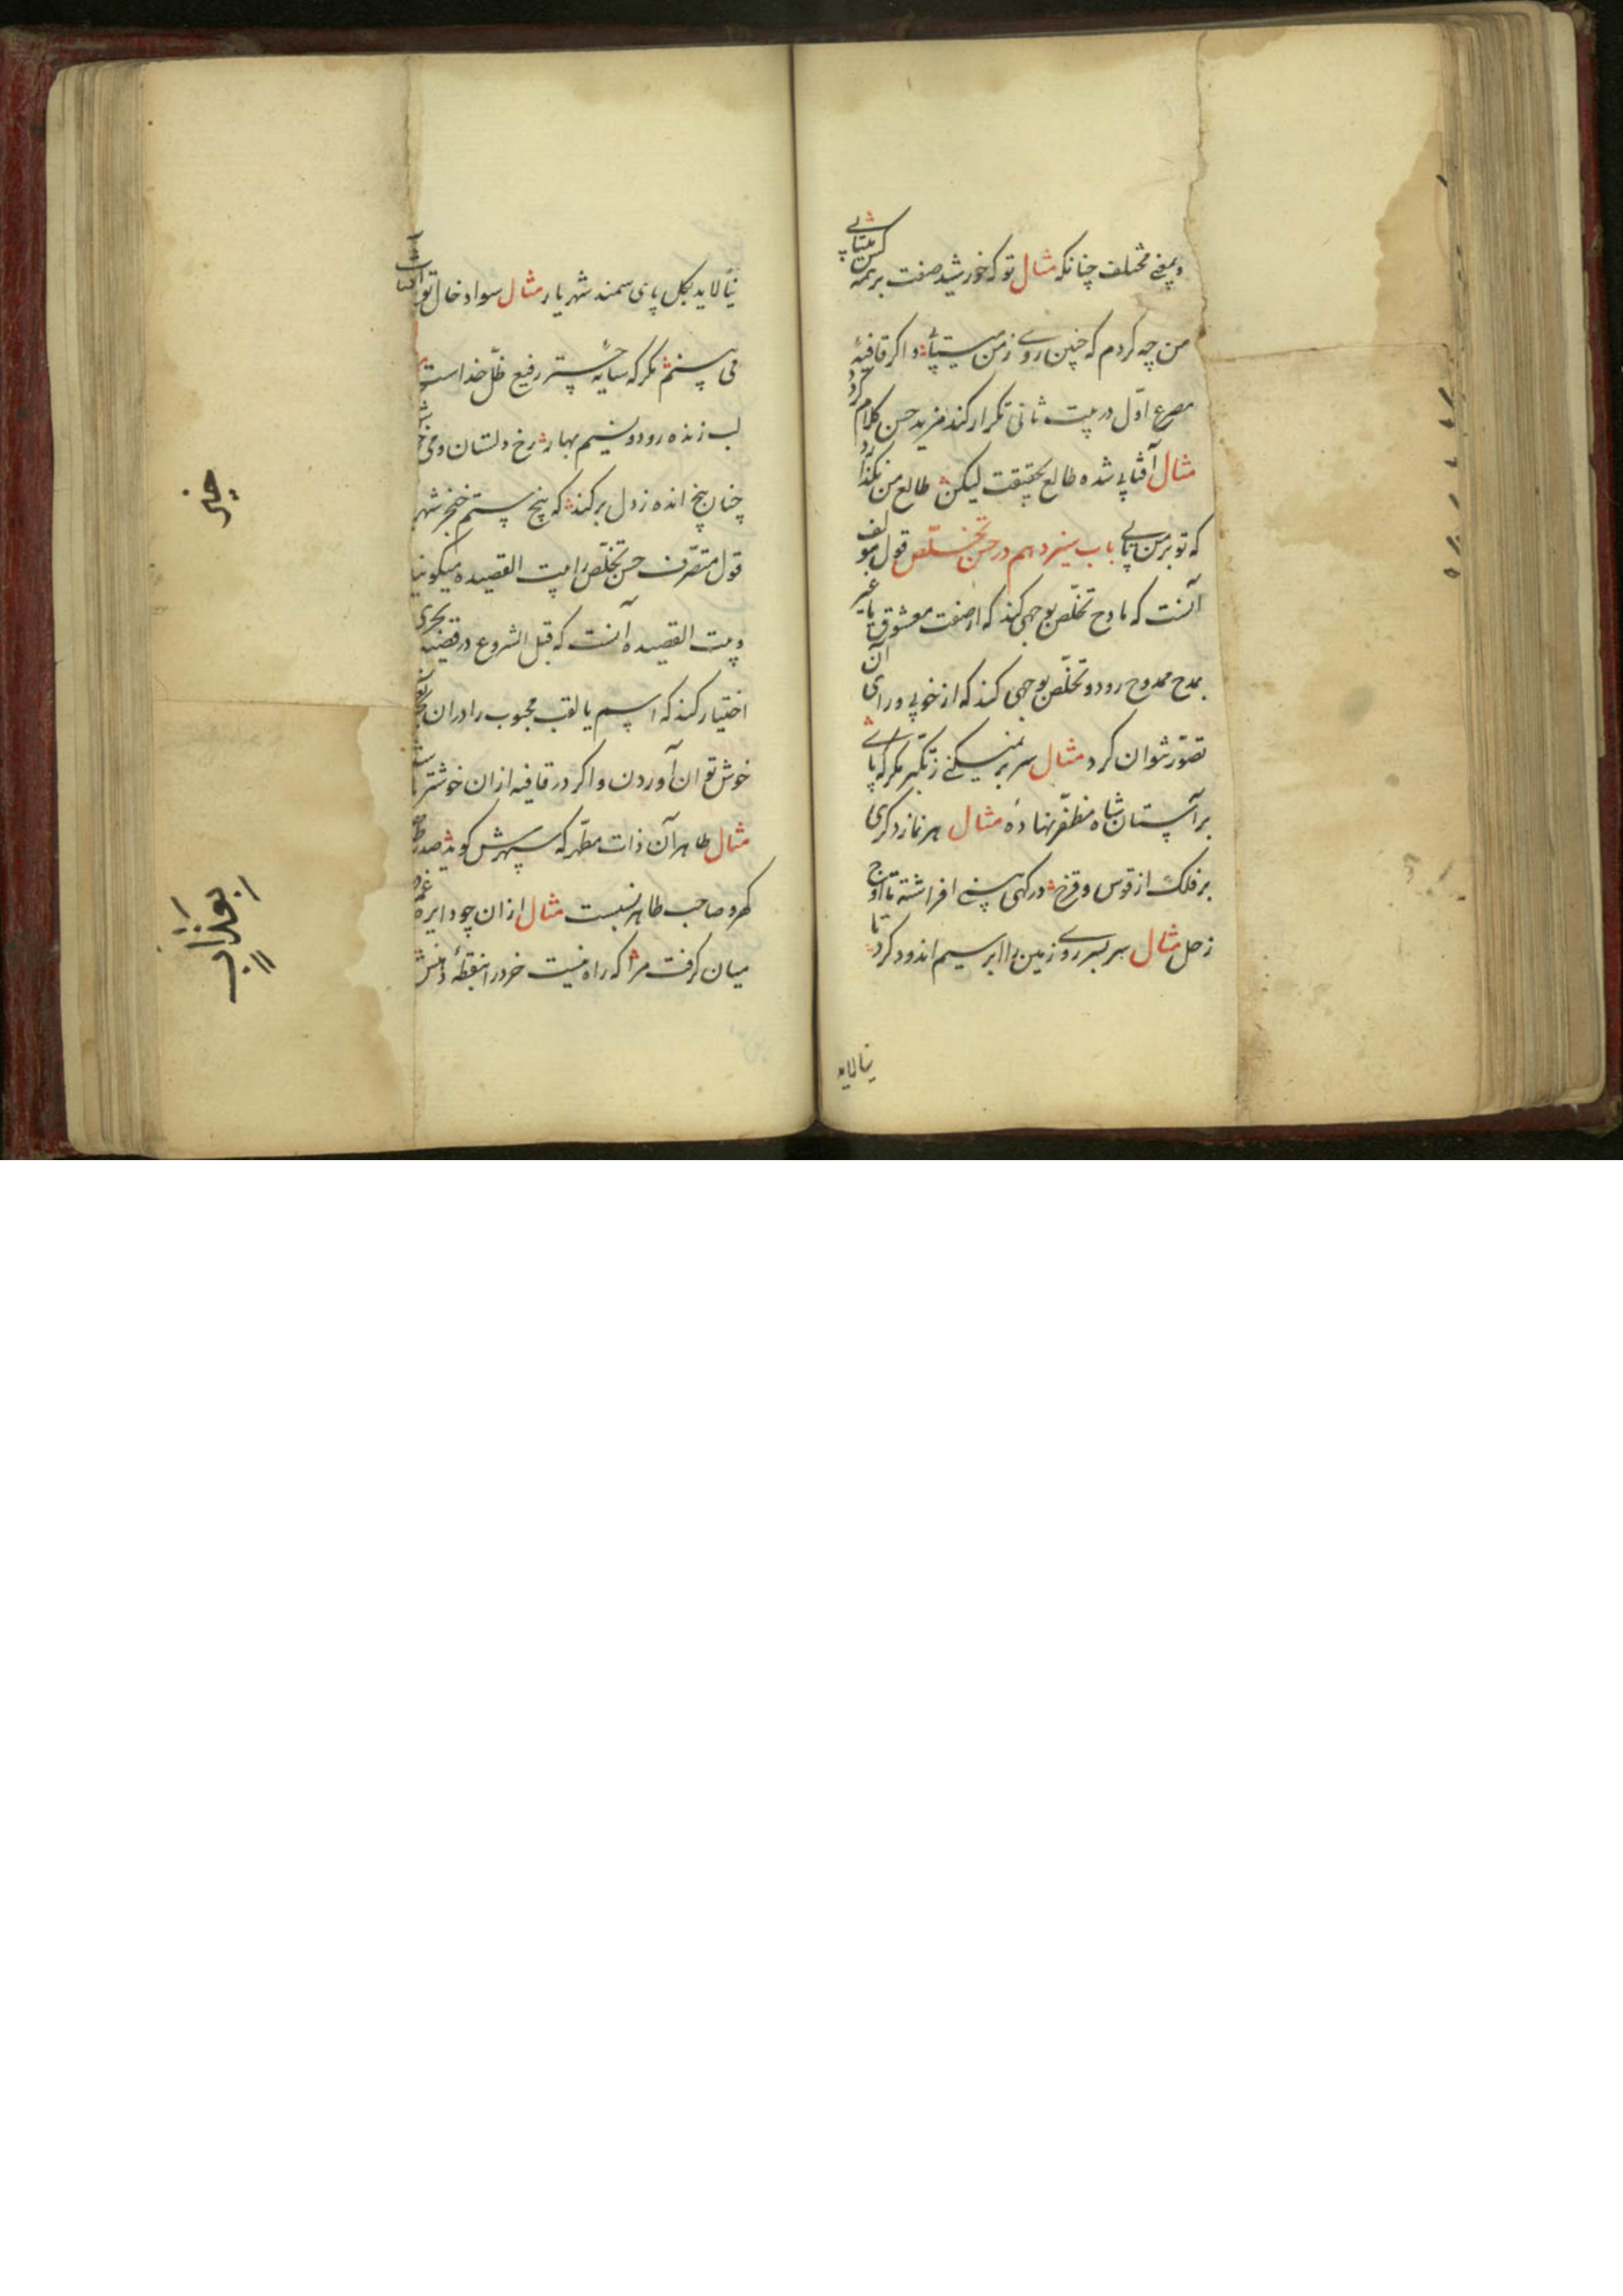 وبمعنی مختلف چنانکه مثال تو که خورشید صفت بر همه کس میتابی
من چه کردم که چنین روی ز من میتابی و اکر قافیهٔ
مصرع اول در بیت ثانی تکرار کند مزید حسن کلام کردد
مثال آفتابی شده طالع بحقیقت لیکن طالع من نکذارد
که تو بر من تابی باب سیزدهم در حسن تخلّص قول مولف
آنست که مادح تخلّص بوجهی کند که از صفت معشوق یا غیر
بمدح ممدوح رود و تخلّص بوجهی کند که از خوبی ورای آن
تصوّر نتوان کرد مثال سر بر نمیکنی ز تکبّر مکر که پای
بر آستان شاه مظفّر نهادهٔ مثال هر نماز دکری
بر فلک از قوس و قزح درکهی بینی افراشته تا اوج
زحل مثال سر بسر روی زمین را ابر سیم اندود کرد تا
نیالاید
نیالاید بکل پای سمند شهریار مثال سواد خال تو
می بینم مکر که سایهٔ چتر رفیع ظلّ خداست
لب زنده رود و نسیم بهار رخ دلستان و می
چنان بیخ انده ز دل بر کند که بیخ ستم خنجر شهر
قول متصرّف حسن تخلّص را بیت القصیده میکویند
و بیت القصیده آنست که قبل الشروع در قصیده بحری
اختیار کند که اسم یا لقب محبوب را در ان بحر
خوش توان آوردن و اکر در قافیه ازان خوشتر
مثال طاهر آن ذات مطهّر که سپهرش کوید صدر
کهر و صاحب طاهر نسبت مثال ازان چو دایره
میان کرفت مرا که راه نیست خرد را بنقطهٔ دهنش